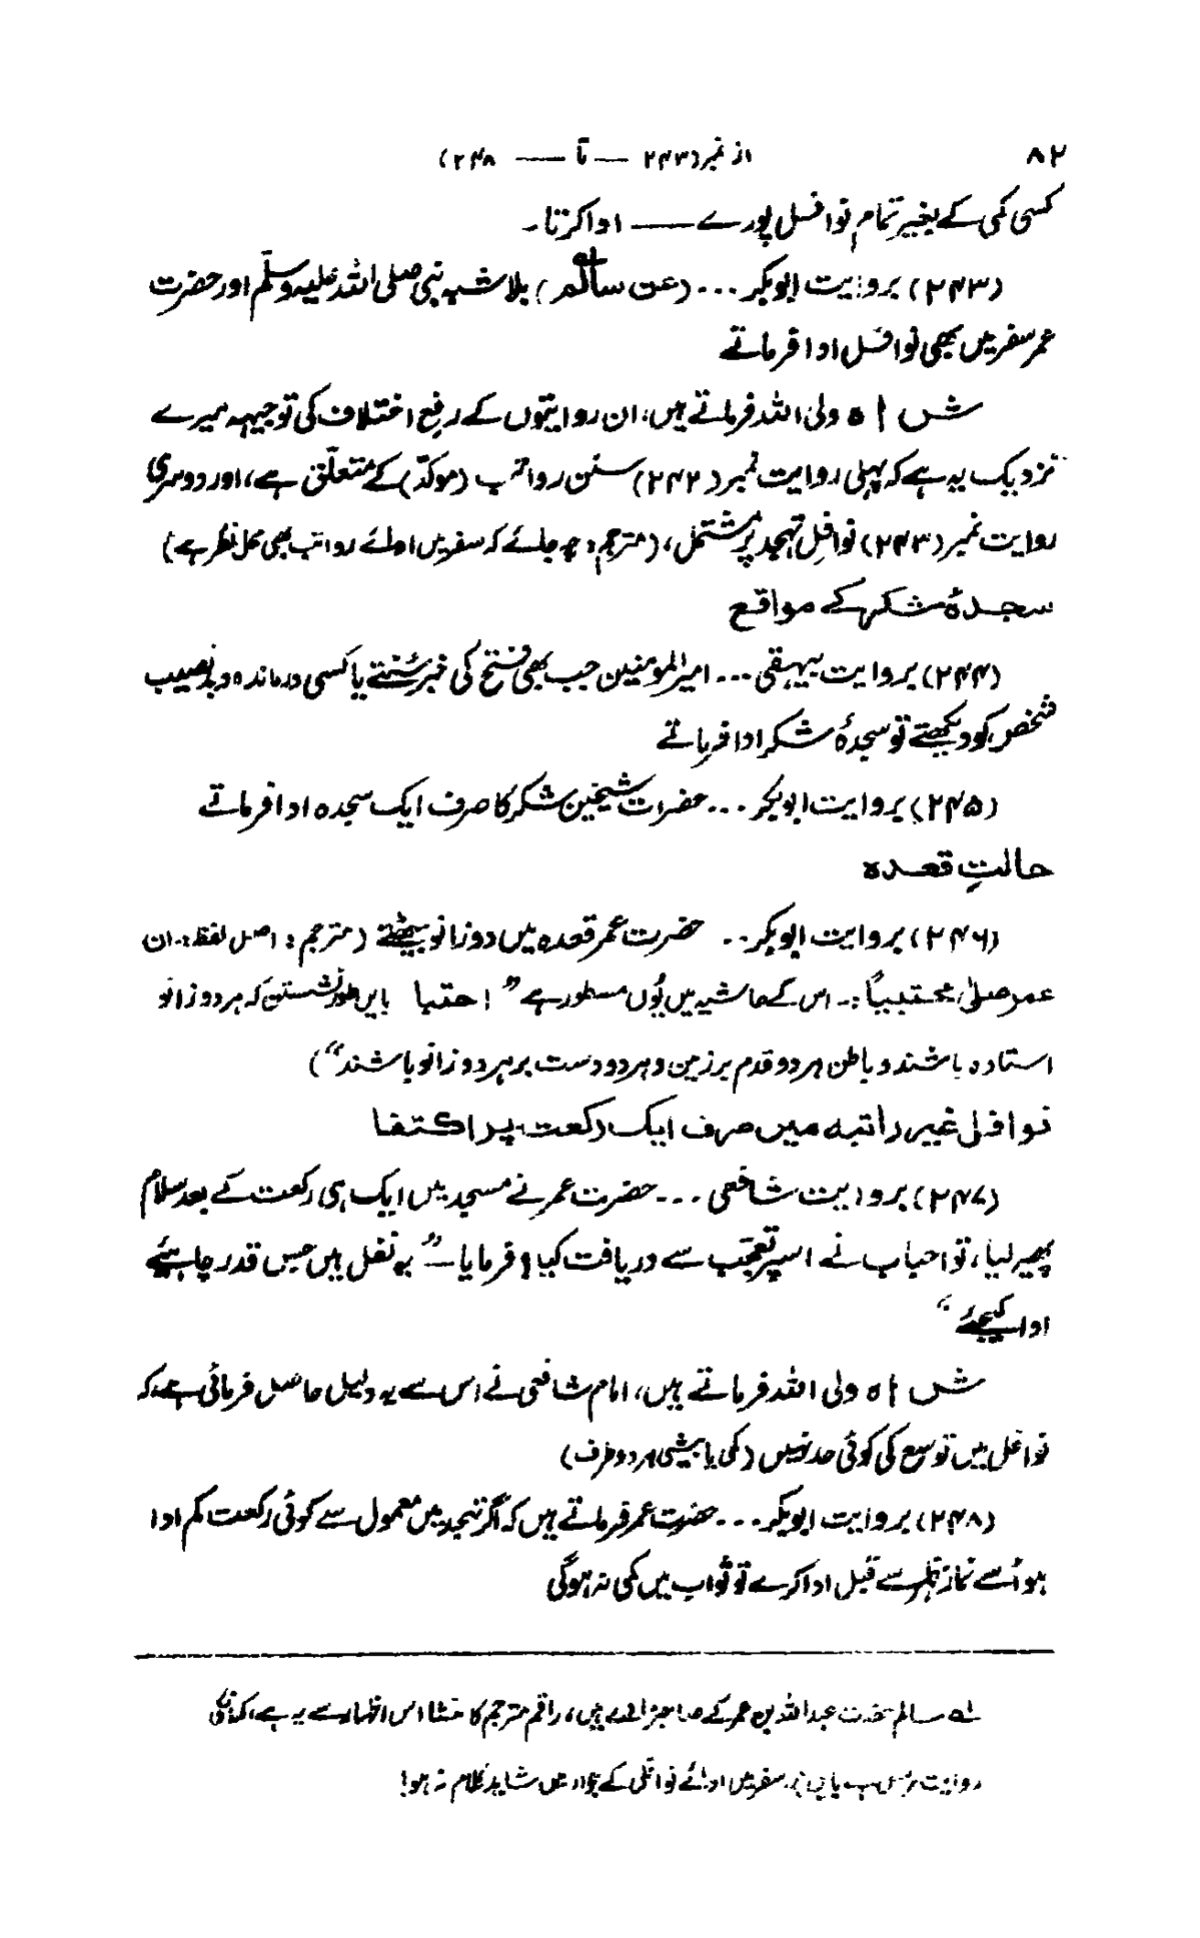 ۸۲ از نمبر (۲۴۳ — تا — ۲۴۸)
کسی کمی کے بغیر تمام نوافل پورے — ادا کرتا۔
(۲۴۳) بروایت ابوبکر ... (عن سالم) بلاشبہ نبی صلی اللہ علیہ وسلّم اور حضرت
عمر سفر میں بھی نوافل ادا فرماتے
شاہ ولی اللہ فرماتے ہیں، ان روایتوں کے رفع اختلاف کی توجیہہ میرے
نزدیک یہ ہے کہ پہلی روایت نمبر (۲۴۲) سنن رواتب (موکدّ) کے متعلّق ہے، اور دوسری
روایت نمبر (۲۴۳) نوافلِ تہجد پر مشتمل، (مترجم: چہ جائے کہ سفر میں ادائے رواتب بھی محل نظر ہے)
سجدۂ شکر کے مواقع
(۲۴۴) بروایت بیہقی ... امیر المومنین جب بھی فتح کی خبر سُنتے یا کسی درماندہ و بدنصیب
شخص کو دیکھتے تو سجدۂ شکر ادا فرماتے
(۲۴۵) بروایت ابوبکر ... حضرات شیخین شکر کا صرف ایک سجدہ ادا فرماتے
حالتِ قعدہ
(۲۴۶) بروایت ابوبکر .. حضرت عمر قعدہ میں دوزانو بیٹھتے (مترجم: اصل لفظ:۔ ان
عمر صلیٰ محتبیاً :۔ اس کے حاشیہ میں یُوں مسطور ہے ”احتبا بایں طور نشستن کہ ہر دو زانو
استادہ باشند و باطن ہر دو قدم بر زمین و ہر دو دست بر ہر دو زانو باشند“)
نوافل غیر راتبہ میں صرف ایک رکعت پر اکتفا
(۲۴۷) بروایت شافعی ... حضرت عمر نے مسجد میں ایک ہی رکعت کے بعد سلام
پھیر لیا، تو احباب نے اسپر تعجّب سے دریافت کیا، فرمایا — ”یہ نفل ہیں جس قدر چاہیئے
ادا کیجئے“
شاہ ولی اللہ فرماتے ہیں، امام شافعی نے اس سے یہ دلیل حاصل فرمائی ہے کہ
نوافل میں توسیع کی کوئی حد نہیں (کمی یا بیشی ہر دو طرف)
(۲۴۸) بروایت ابوبکر ... حضرت عمر فرماتے ہیں کہ اگر تہجد میں معمول سے کوئی رکعت کم ادا
ہو اُسے نماز ظہر سے قبل ادا کرے تو ثواب میں کمی نہ ہوگی
لہ سالم حضرت عبداللہ بن عمر کے صاحبزادے ہیں، راقم مترجم کا منشا اس اظہار سے یہ ہے کہ
روایت سفر میں ادائے نوافل کے جواز میں شاید کلام نہ ہو!